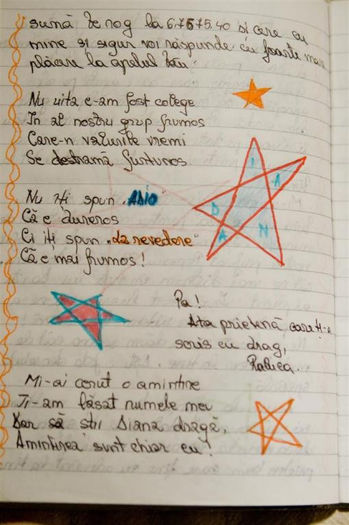 sună te rog la 6.75.75.40 și cere cu
mine și sigur voi răspunde cu foarte mare
plăcere la apelul tău.
Nu uita c-am fost colege
În al nostru grup frumos
Care-n valurile vremi
Se destramă furtunos
Nu îți spun „Adio"
Că e dureros
Ci îți spun „La revedere"
Că e mai frumos!
D I A N A
Pa!
Ata prietenă care ți-a
scris cu drag,
Raluca.
Mi-ai cerut o amintire
Ți-am lăsat numele meu
Dar să știi Diana dragă,
Amintirea sunt chiar eu!